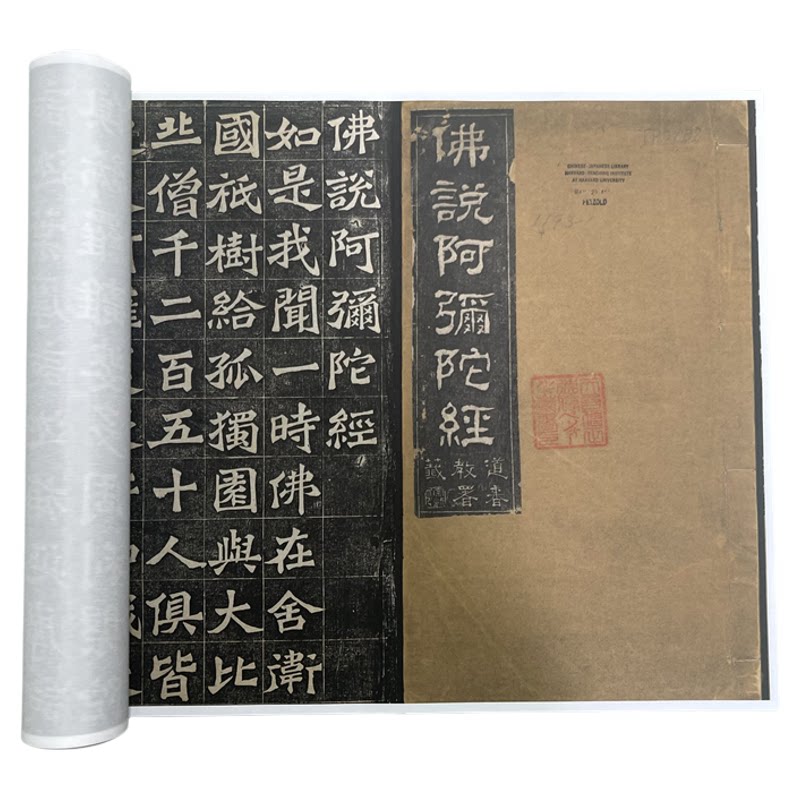 CHINESE-JAPANESE LIBRARY
HARVARD-YENCHING INSTITUTE
AT HARVARD UNIVERSITY
佛說阿彌陀經
道
教署
籤
佛說阿彌陀經
如是我聞一時佛在舍衛
國祇樹給孤獨園與大比
丠僧千二百五十人俱皆